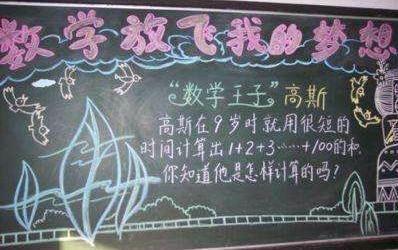 数学放飞我的梦想
“数学王子”高斯
高斯在9岁时就用很短的
时间计算出1+2+3……+100的和,
你知道他是怎样计算的吗?